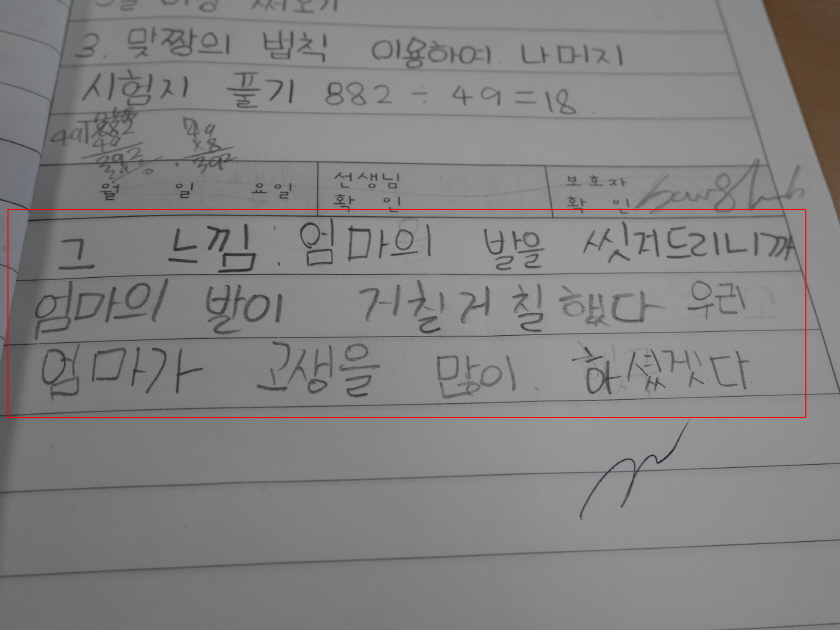 3. 맞짱의 법칙 이용하여 나머지
시험지 풀기 882 ÷ 49 = 18
월 일 요일 선생님 확인 보호자 확인
그 느낌: 엄마의 발을 씻저드리니까
엄마의 발이 거칠거칠했다 우리
엄마가 고생을 많이 하셨겟다